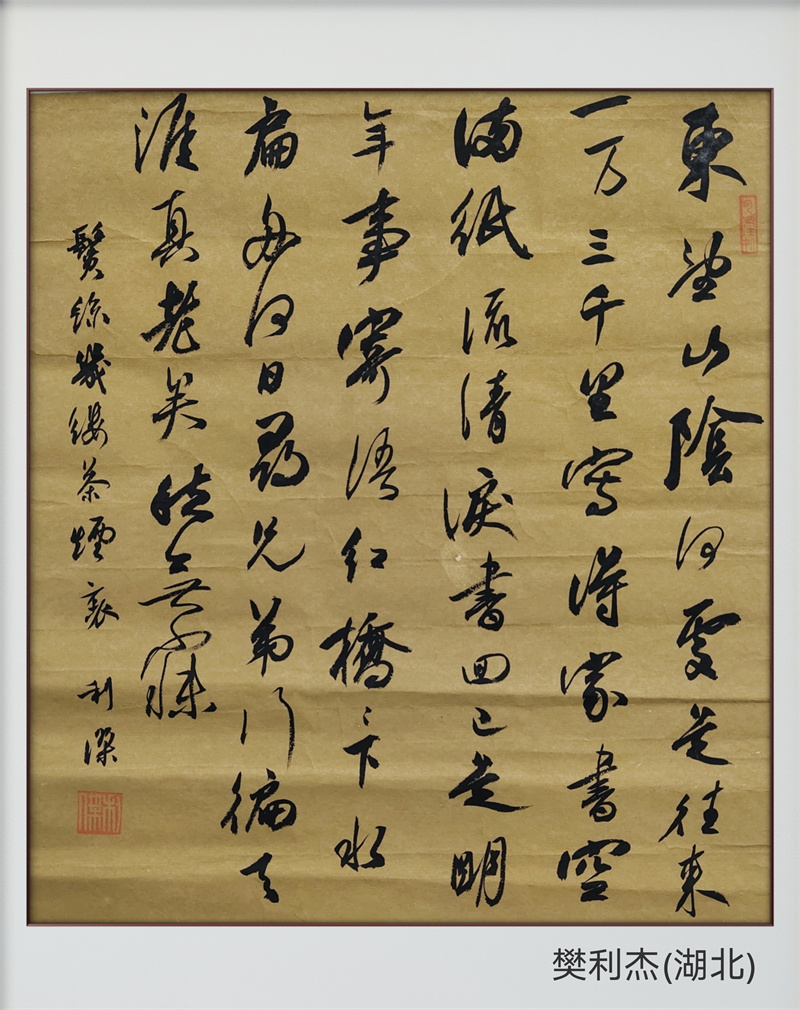 東望山陰何處是往來
一万三千里寫得家書空
滿紙流清淚書回已是明
年事寄語紅橋〻下水
扁舟何日尋兄弟行徧天
涯真老矣愁無寐
鬢絲幾縷茶煙裏 利傑
樊利杰(湖北)